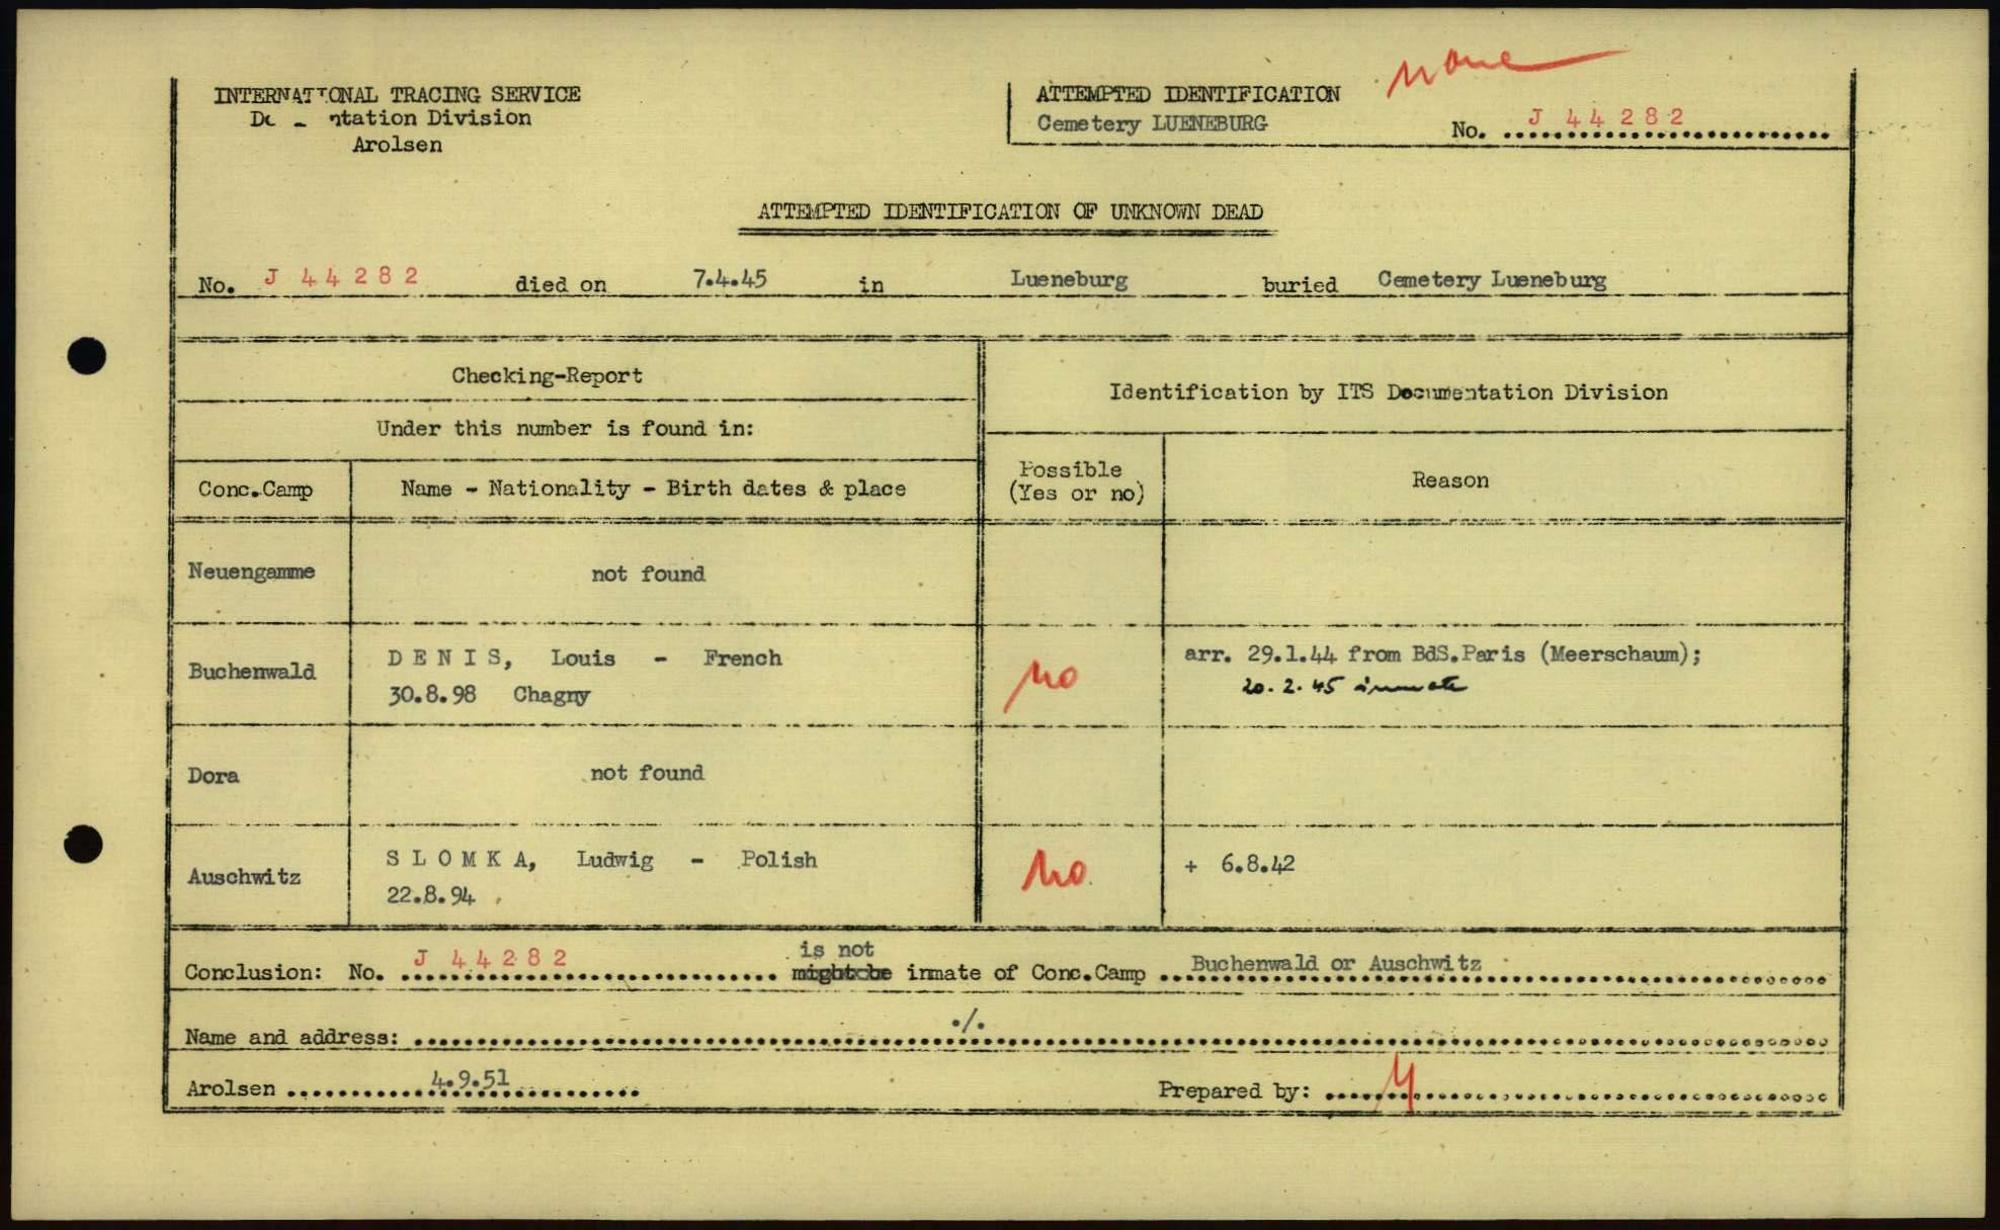 none
INTERNATIONAL TRACING SERVICE
ntation Division
Arolsen
ATTEMPTED IDENTIFICATION
Cemetery LUENEBURG
No. J 44282
ATTEMPTED IDENTIFICATION OF UNKNOWN DEAD
No. J 44282 died on 7.4.45 in Lueneburg buried Cemetery Lueneburg
Checking-Report
Identification by ITS Documentation Division
Under this number is found in:
Conc.Camp Name - Nationality - Birth dates & place
Possible
(Yes or no)
Reason
Neuengamme not found
Buchenwald
D E N I S, Louis - French
30.8.98 Chagny
no
arr. 29.1.44 from BdS.Paris (Meerschaum);
20.2.45 inmate
Dora not found
Auschwitz
S L O M K A, Ludwig - Polish
22.8.94
no
+ 6.8.42
is not
Conclusion: No. J 44282 might be inmate of Conc.Camp Buchenwald or Auschwitz
Name and address: ./.
Arolsen 4.9.51 Prepared by: